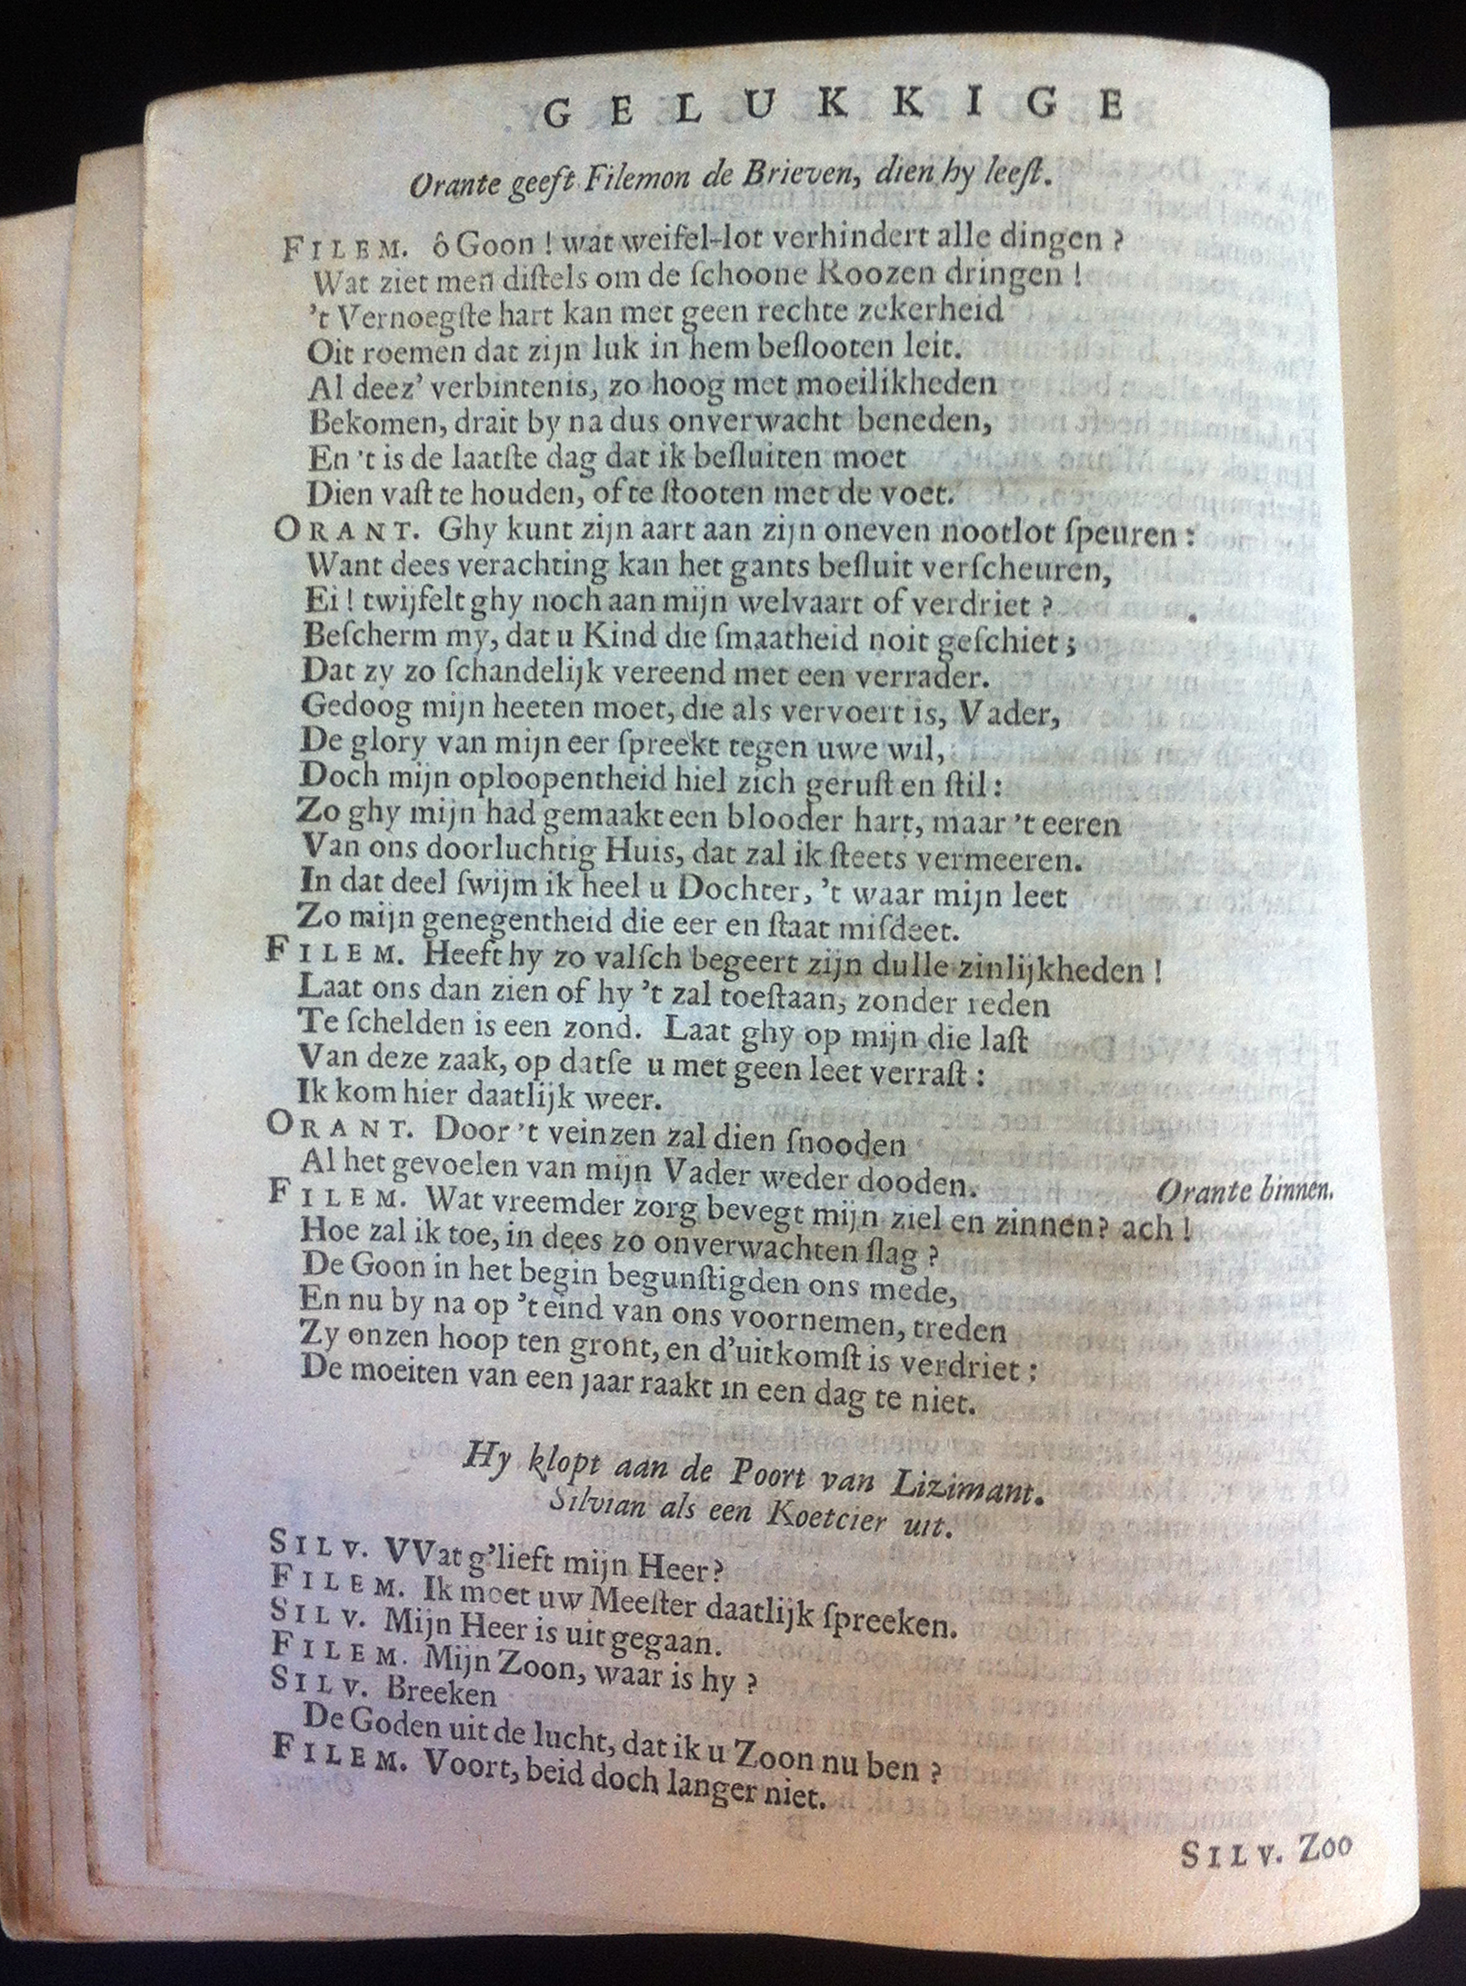 GELUKKIGE
Orante geeft Filemon de Brieven, dien hy leeſt.
FILEM. ô Goon! wat weifel-lot verhindert alle dingen?
Wat ziet men diſtels om de ſchoone Roozen dringen!
't Vernoegſte hart kan met geen rechte zekerheid
Oit roemen dat zijn luk in hem beſlooten leit.
Al deez' verbintenis, zo hoog met moeilikheden
Bekomen, drait by na dus onverwacht beneden,
En 't is de laatſte dag dat ik beſluiten moet
Dien vaſt te houden, of te ſtooten met de voet.
ORANT. Ghy kunt zijn aart aan zijn oneven nootlot ſpeuren:
Want dees verachting kan het gants beſluit verſcheuren,
Ei! twijfelt ghy noch aan mijn welvaart of verdriet?
Beſcherm my, dat u Kind die ſmaatheid noit geſchiet;
Dat zy zo ſchandelijk vereend met een verrader.
Gedoog mijn heeten moet, die als vervoert is, Vader,
De glory van mijn eer ſpreekt tegen uwe wil,
Doch mijn oploopentheid hiel zich geruſt en ſtil:
Zo ghy mijn had gemaakt een blooder hart, maar 't eeren
Van ons doorluchtig Huis, dat zal ik ſteets vermeeren.
In dat deel ſwijm ik heel u Dochter, 't waar mijn leet
Zo mijn genegentheid die eer en ſtaat miſdeet.
FILEM. Heeft hy zo valſch begeert zijn dulle zinlijkheden!
Laat ons dan zien of hy 't zal toeſtaan, zonder reden
Te ſchelden is een zond. Laat ghy op mijn die laſt
Van deze zaak, op datſe u met geen leet verraſt:
Ik kom hier daatlijk weer.
ORANT. Door 't veinzen zal dien ſnooden
Al het gevoelen van mijn Vader weder dooden. Orante binnen.
FILEM. Wat vreemder zorg bevegt mijn ziel en zinnen? ach!
Hoe zal ik toe, in dees zo onverwachten ſlag?
De Goon in het begin begunſtigden ons mede,
En nu by na op 't eind van ons voornemen, treden
Zy onzen hoop ten gront, en d'uitkomſt is verdriet;
De moeiten van een jaar raakt in een dag te niet.
Hy klopt aan de Poort van Lizimant.
Silvian als een Koetcier uit.
SILV. VVat g'lieft mijn Heer?
FILEM. Ik moet uw Meeſter daatlijk ſpreeken.
SILV. Mijn Heer is uit gegaan.
FILEM. Mijn Zoon, waar is hy?
SILV. Breeken
De Goden uit de lucht, dat ik u Zoon nu ben?
FILEM. Voort, beid doch langer niet.
SILV. Zoo